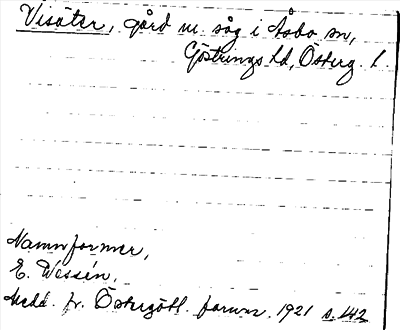 Visäter, gård m. såg i Åsbo sn,
Göstrings hd, Österg. l.
Namnformer,
E. Wessén,
Medd. fr. Östergötl. fornm. 1921 s. 142